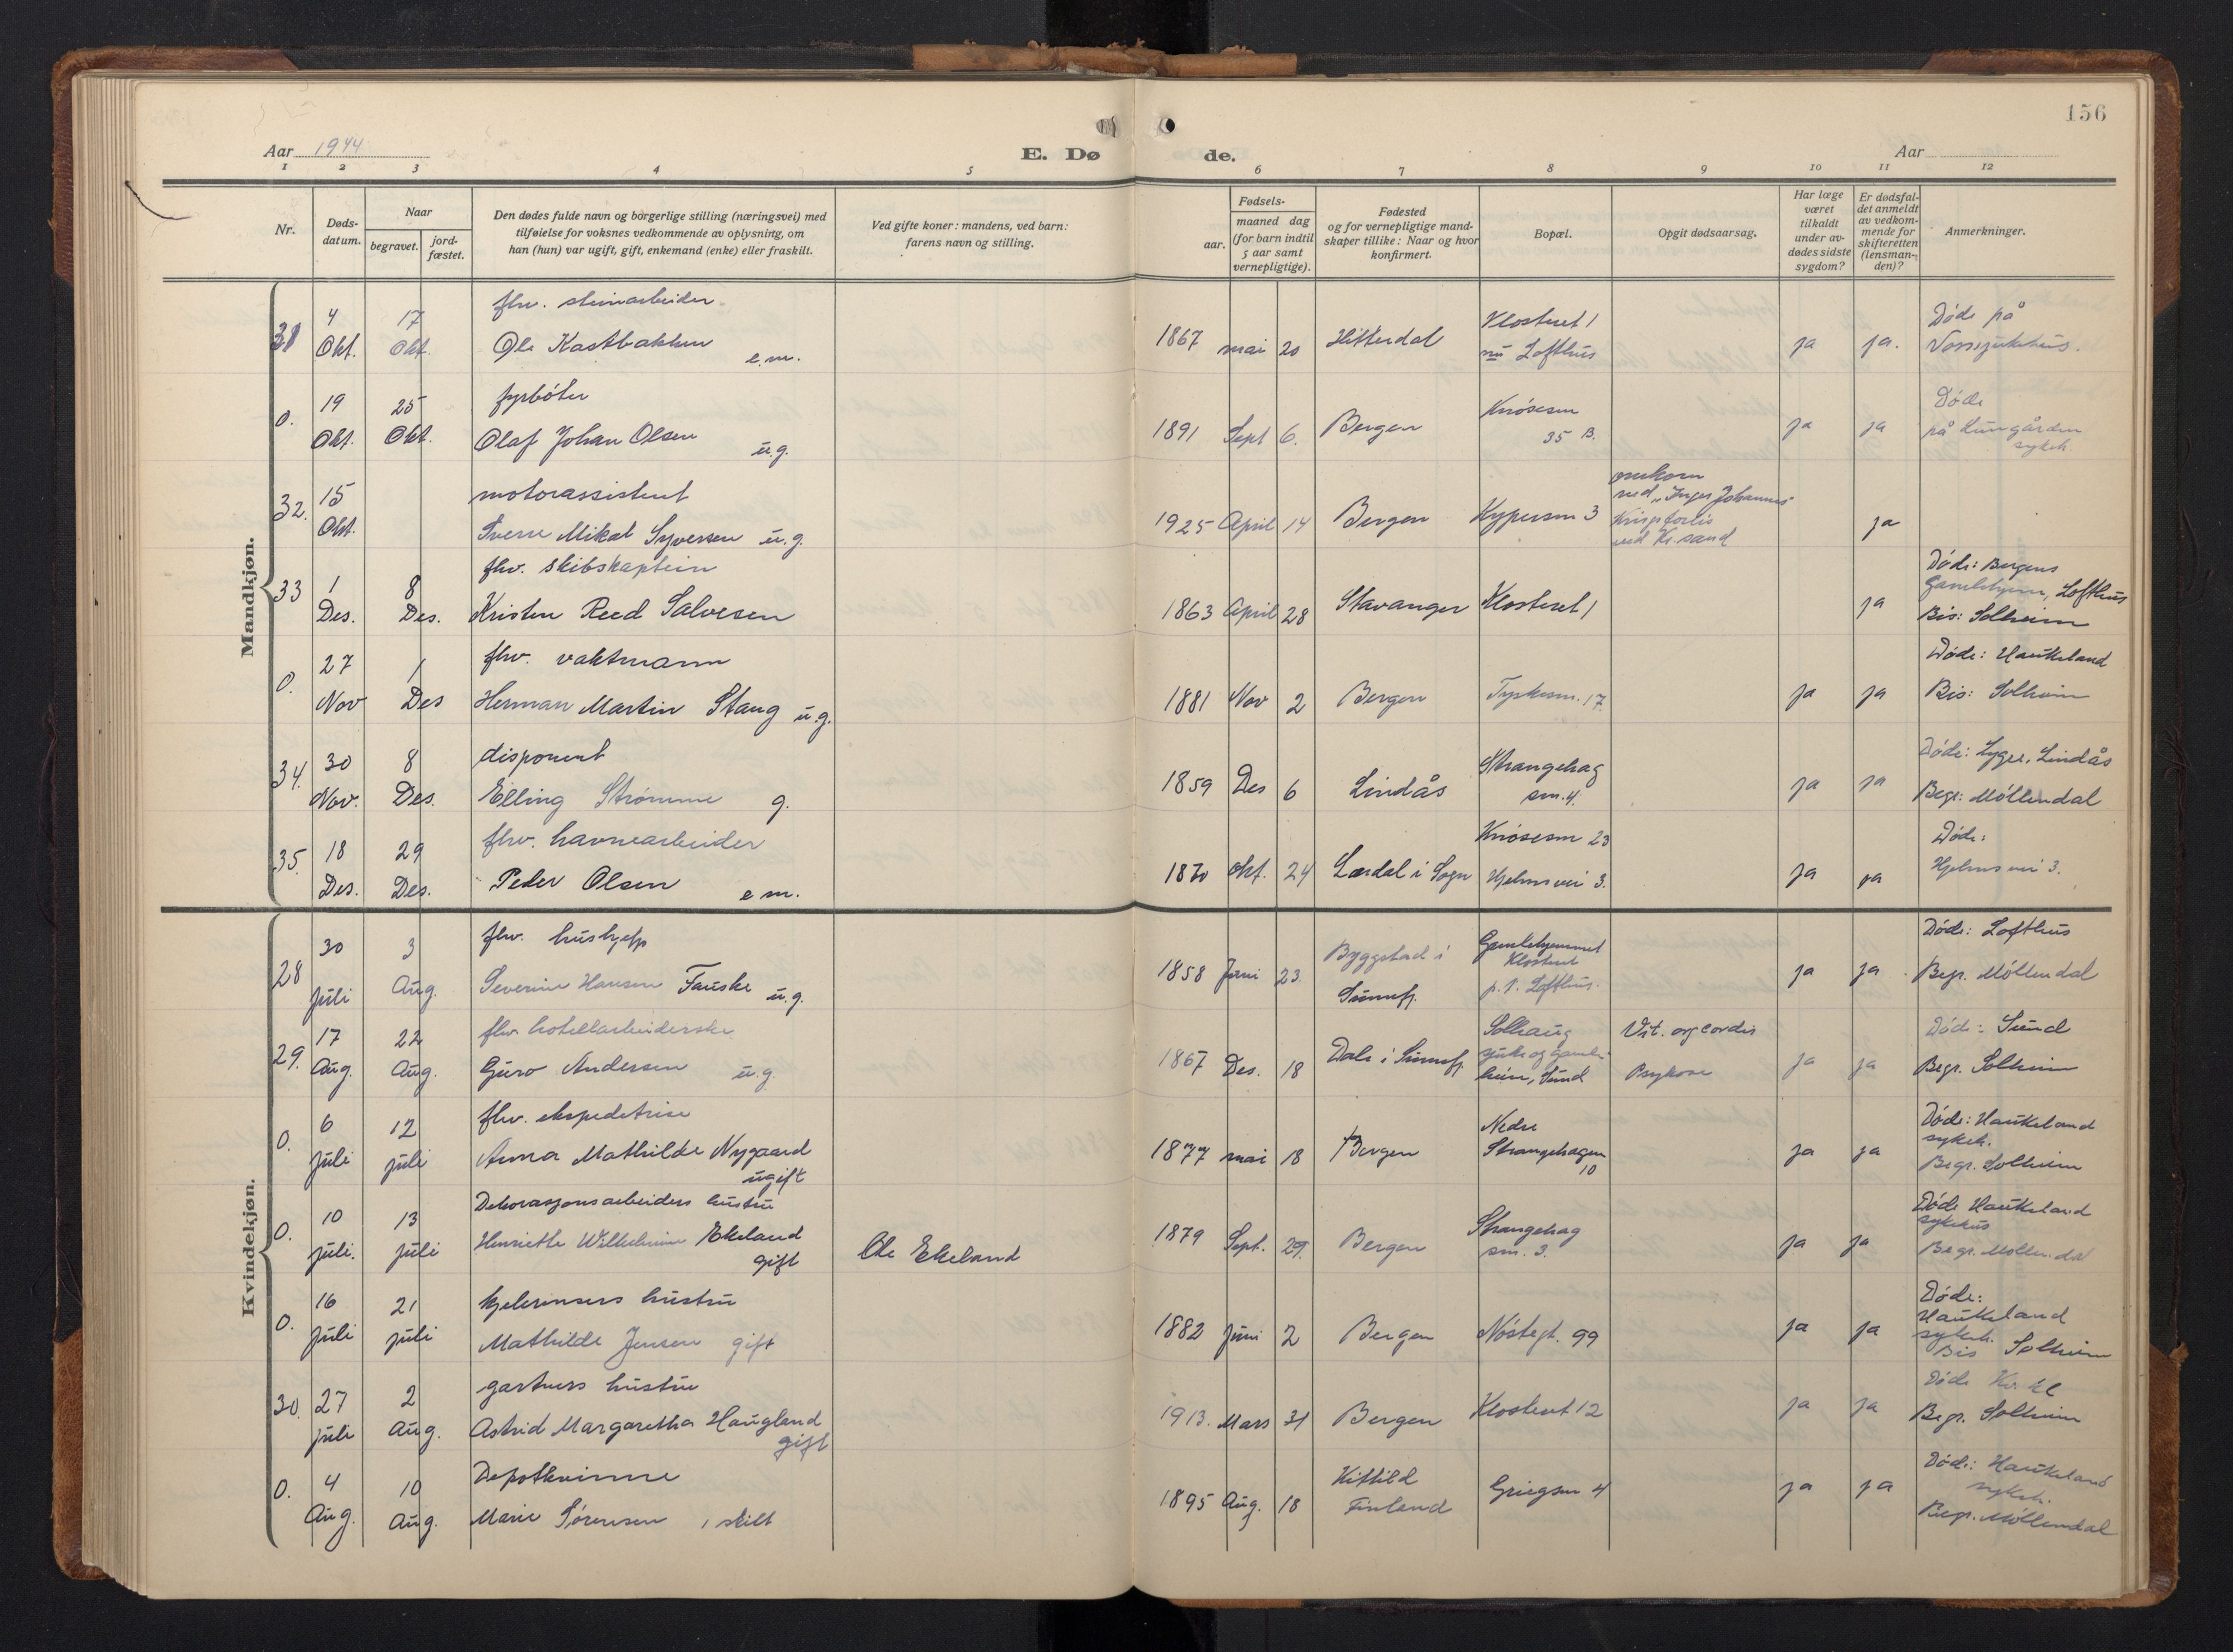 156
Aar 1944
E. Dø
de.
Aar
1 2 3 4 5 6 7 8 9 10 11 12
Nr.
Døds-
datum.
Naar
begravet.
jord-
fæstet.
Den dødes fulde navn og borgerlige stilling (næringsvei) med
tilføielse for voksnes vedkommende av oplysning, om
han (hun) var ugift, gift, enkemand (enke) eller fraskilt.
Ved gifte koner: mandens, ved barn:
farens navn og stilling.
Fødsels-
aar.
maaned dag
(for barn indtil
5 aar samt
vernepligtige).
Fødested
og for vernepligtige mand-
skaper tillike: Naar og hvor
konfirmert.
Bopæl.
Opgit dødsaarsag.
Har læge
været
tilkaldt
under av-
dødes sidste
sygdom?
Er dødsfal-
det anmeldt
av vedkom-
mende for
skifteretten
(lensman-
den)?
Anmerkninger.
Mandkjøn.
4 17 fhv. steinarbeider Klosteret 1 Døde på
31 Okt. Okt. Ole Kastbakken e.m. 1867 mai 20 Hitterdal nu Lofthus ja ja. Vossesjukehus.
19 25 fyrbøter Knøsesm Døde
0. Okt. Okt. Olaf Johan Olsen u.g. 1891 Sept 6. Bergen 35 B. ja ja på Lungården
sykeh.
15 motorassistent omkom
med "Inger Johanne"
32. Okt. Sverre Mikal Syversen u.g. 1925 April 14 Bergen Kypersm 3 Krigsforlis ja
ved Kr.sand
fhv. skibskaptein Døde: Bergens
33 1 8 Gamlehjem, Lofthus
Des. Des. Kristen Reed Salvesen 1863 April 28 Stavanger Klosteret 1 ja Bis: Solheim
27 1 fhv. vaktmann Døde: Haukeland
0. Nov Des Herman Martin Stang u.g. 1881 Nov 2 Bergen Tyskesm. 17. ja ja Bis: Solheim
30 8 disponent Strangehag Døde: Lygre, Lindås
34. Nov. Des. Elling Strømme g. 1859 Des 6 Lindås sm. 4. ja ja Begr: Møllendal
18 29 fhv. havnearbeider Knøsesm 23 Døde:
35. Des. Des. Peder Olsen e m. 1870 okt. 24 Lærdal i Sogn Hjelmsvei 3. ja ja Hjelmsvei 3.
Kvindekjøn.
30 3 fhv. hushjelp Gamlehjemmet Døde: Lofthus
28 Byggstad i Klosteret
Juli Aug. Severine Hansen Fauske u.g. 1858 Juni 23. Sunnfj. p.t. Lofthus. ja ja Begr. Møllendal
17 22 fhv. hotellarbeiderske Solhaug Vit. org cordis Døde: Sund
29. Aug. Aug. Guro Andersen u.g. 1867 Des. 18 Dale i Sunnfj. sjuke og gamle- ja ja Begr. Solheim
heim, Sund Psykose
6 12 fhv. ekspeditrise Nedre Døde: Haukeland
0. juli juli Anna Mathilde Nygaard 1877 mai 18 Bergen Strangehagen ja ja sykeh.
ugift 10 Begr. Solheim
10 13 Dekorasjonsarbeiders hustru Døde Haukeland
0. Henriette Wilhelmine Ekeland 1879 Sept. 29. Bergen Strangehag sykehus
juli. juli gift Ole Ekeland sm. 3. ja ja Begr. Møllendal
16 21 kjelerensers hustru Døde:
0. juli juli Mathilde Jensen gift 1882 Juni 2 Bergen Nøstegt. 99 ja ja Haukeland
sykeh.
Bis Solheim
27 2 gartners hustru Døde Kv. kl
30. juli Aug. Astrid Margaretha Haugland 1913. Mars 31 Bergen Klosteret 12 ja ja Begr. Solheim
gift
4 10 Depotkvinne Kittilä Døde: Haukeland
0. Aug. Aug. Marie Sørensen, skilt 1895 Aug. 18 Finland Griegsm 4 ja ja sykeh.
Begr. Møllendal